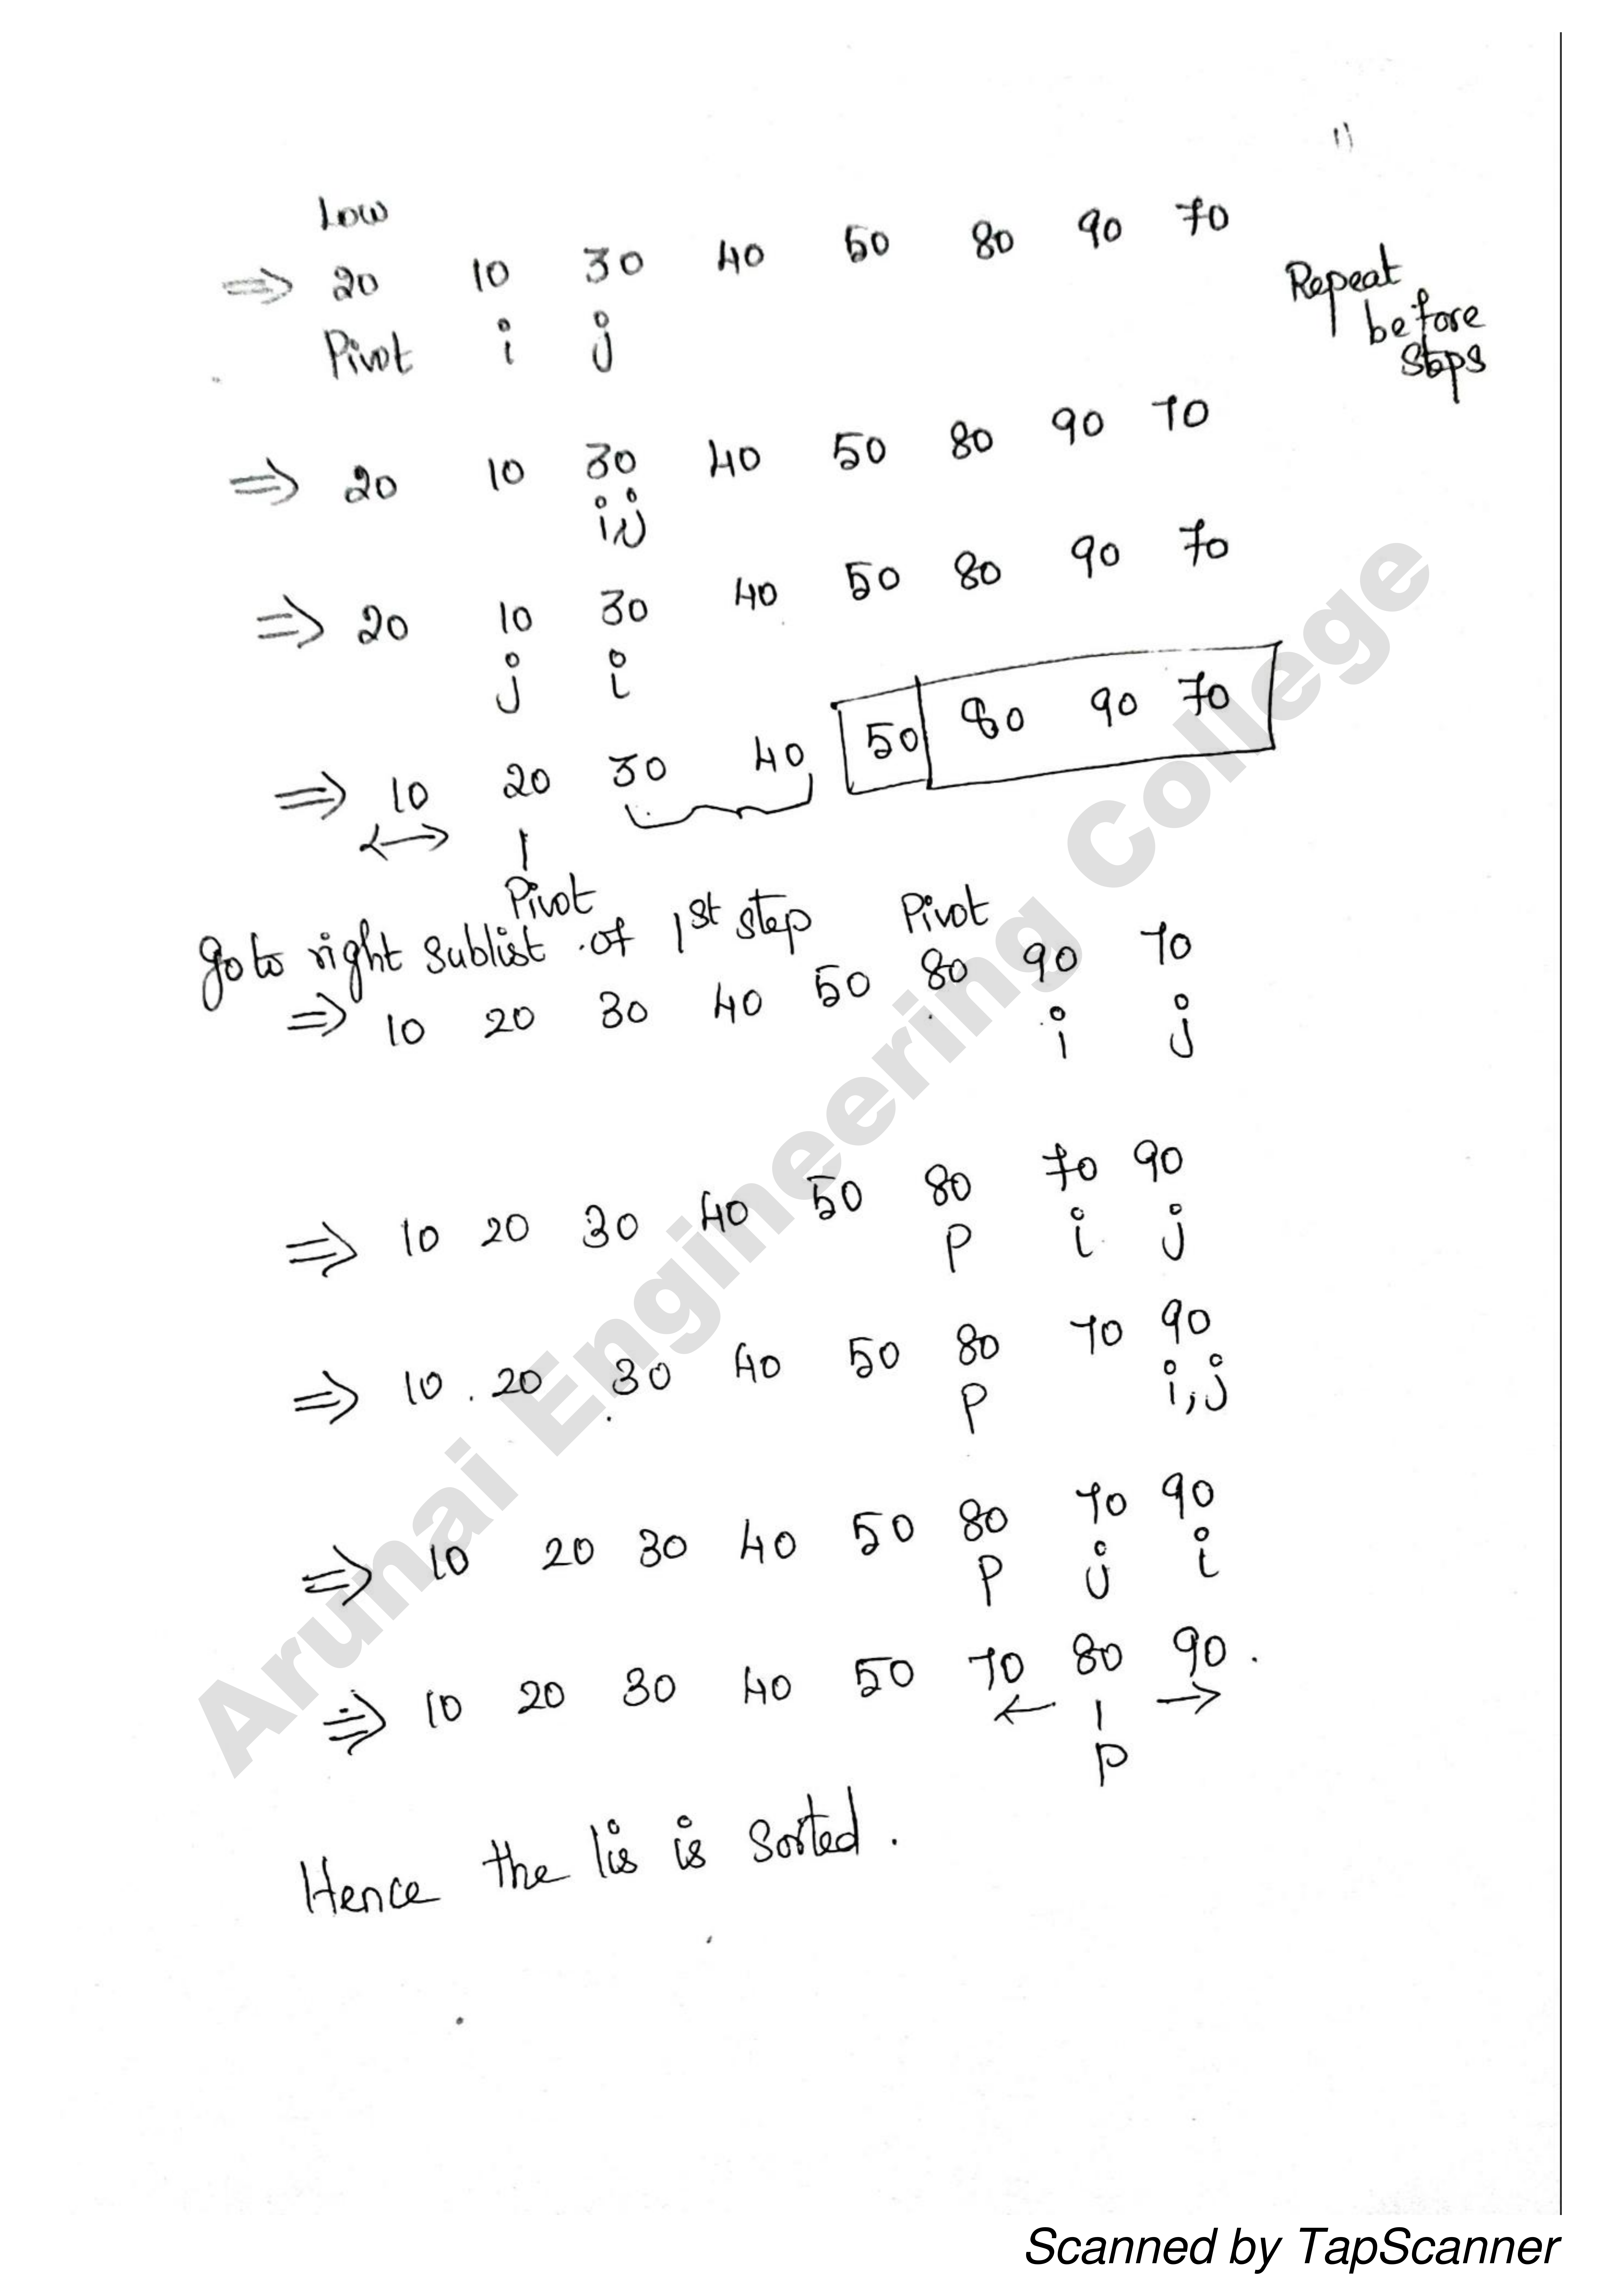 11
Low
⇒ 20 10 30 40 50 80 90 70
Pivot i j
Repeat
before
steps
⇒ 20 10 30 40 50 80 90 70
i,j
⇒ 20 10 30 40 50 80 90 70
j i
⇒ 10 20 30 40 50 80 90 70
Pivot
go to right sublist of 1st step Pivot
⇒ 10 20 30 40 50 80 90 70
i j
⇒ 10 20 30 40 50 80 70 90
P i j
⇒ 10 20 30 40 50 80 70 90
P i,j
⇒ 10 20 30 40 50 80 70 90
P j i
⇒ 10 20 30 40 50 70 80 90.
← | →
P
Hence the lis is sorted.
Arunai Engineering College
Scanned by TapScanner